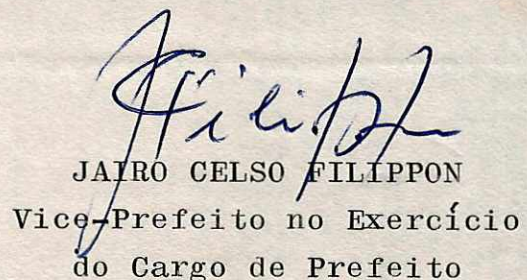 Filippon
JAIRO CELSO FILIPPON
Vice-Prefeito no Exercício
do Cargo de Prefeito